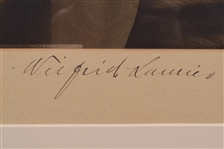 Wilfrid Laurier